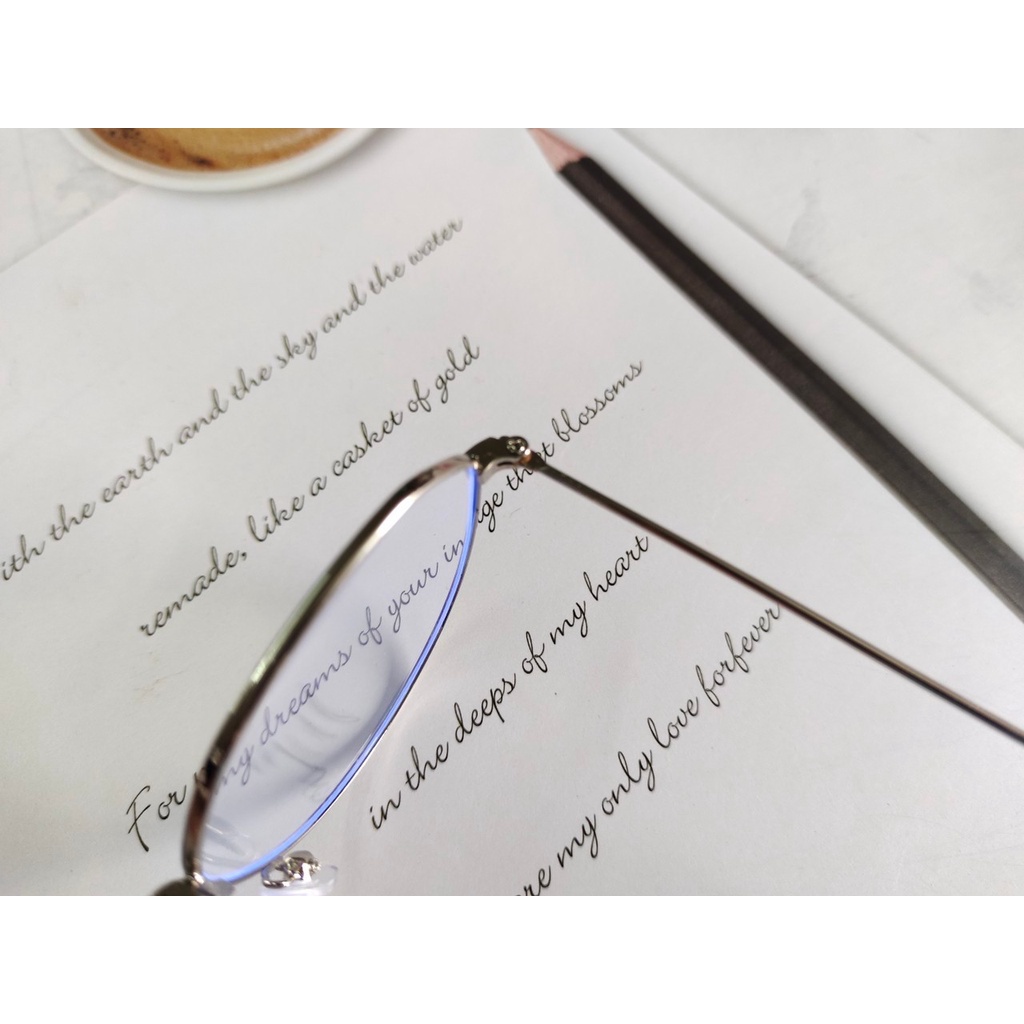 ith the earth and the sky and the water
remade, like a casket of gold
For my dreams of your image that blossoms
in the deeps of my heart
re my only love forfever